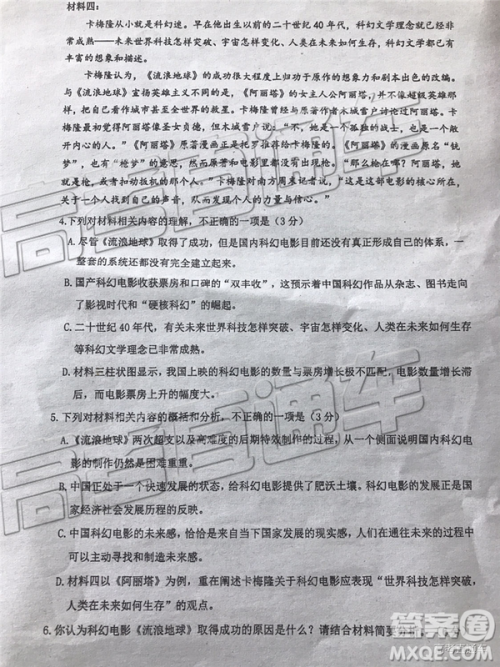 材料四:
卡梅隆从小就是科幻迷。早在他出生前的二十世纪40年代，科幻文学理念就已经非
常成熟——未来世界科技怎样突破、宇宙怎样变化、人类在未来如何生存，科幻文学都已有
丰富的想象和描述。
卡梅隆认为，《流浪地球》的成功很大程度上归功于原作的想象力和剧本改编。
与《流浪地球》宣扬英雄主义不同的是，《阿丽塔》的女主人公阿丽塔并非超级英雄那样，
把自己看作城市甚至全世界的救世主。卡梅隆曾经与原著作者木城雪户讨论过阿丽塔。
卡梅隆最初觉得阿丽塔像圣女贞德，但木城雪户说："不，她不是。她真的是一个会敞
开内心的人。"《阿丽塔》原著漫画正是托罗推荐给卡梅隆的。《阿丽塔》原著漫画名"铳
梦"，也有"枪梦"的意思。然而原著和电影里都没有枪。"那么枪在哪？阿丽塔，阿丽塔
就是被发动的那个人。"卡梅隆对南方周末记者说，"这是这部电影的核心所在，
人类找到自己的声音，从而发现个人的力量与信仰。"
4.下列对材料相关内容的理解，不正确的一项是(3分)
A. 尽管《流浪地球》取得了成功，但是国内科幻电影目前还没有真正形成自己的体系，一
整套的系统还都没有完全建立起来。
B. 国产科幻电影收获票房和口碑的"双丰收"，这预示着中国科幻作品从杂志、图书走向
了影视时代和"硬核科幻"的崛起。
C. 二十世纪40年代，有关未来世界科技怎样突破、宇宙怎样变化、人类在未来如何生存
等科幻文学理念已非常成熟。
D. 材料三柱状图显示，我国上映的科幻电影的数量与票房增长极不匹配，电影数量增长滞
后，而电影票房上升的幅度大。
5. 下列对材料相关内容的概括和分析，不正确的一项是(3分)
A.《流浪地球》两次超支以及高难度的后期特效制作的事实，从一个侧面说明国内科幻电
影的制作仍然是困难重重。
B. 中国正处于一个快速发展的状态，给科幻电影提供了肥沃土壤。科幻电影的发展正是国
家经济社会发展历程的反映。
C. 中国科幻电影的未来感，恰恰是来自当下中国发展的现实感，人们在走向未来的过程中
可以主动寻找和制造未来感。
D. 材料四以《阿丽塔》为例，重在阐述卡梅隆关于科幻电影应表现"世界科技怎样突破、
人类在未来如何生存"的观点。
6. 你认为科幻电影《流浪地球》取得成功的原因是什么？请结合材料简要分析。
高考直通车
答案圈